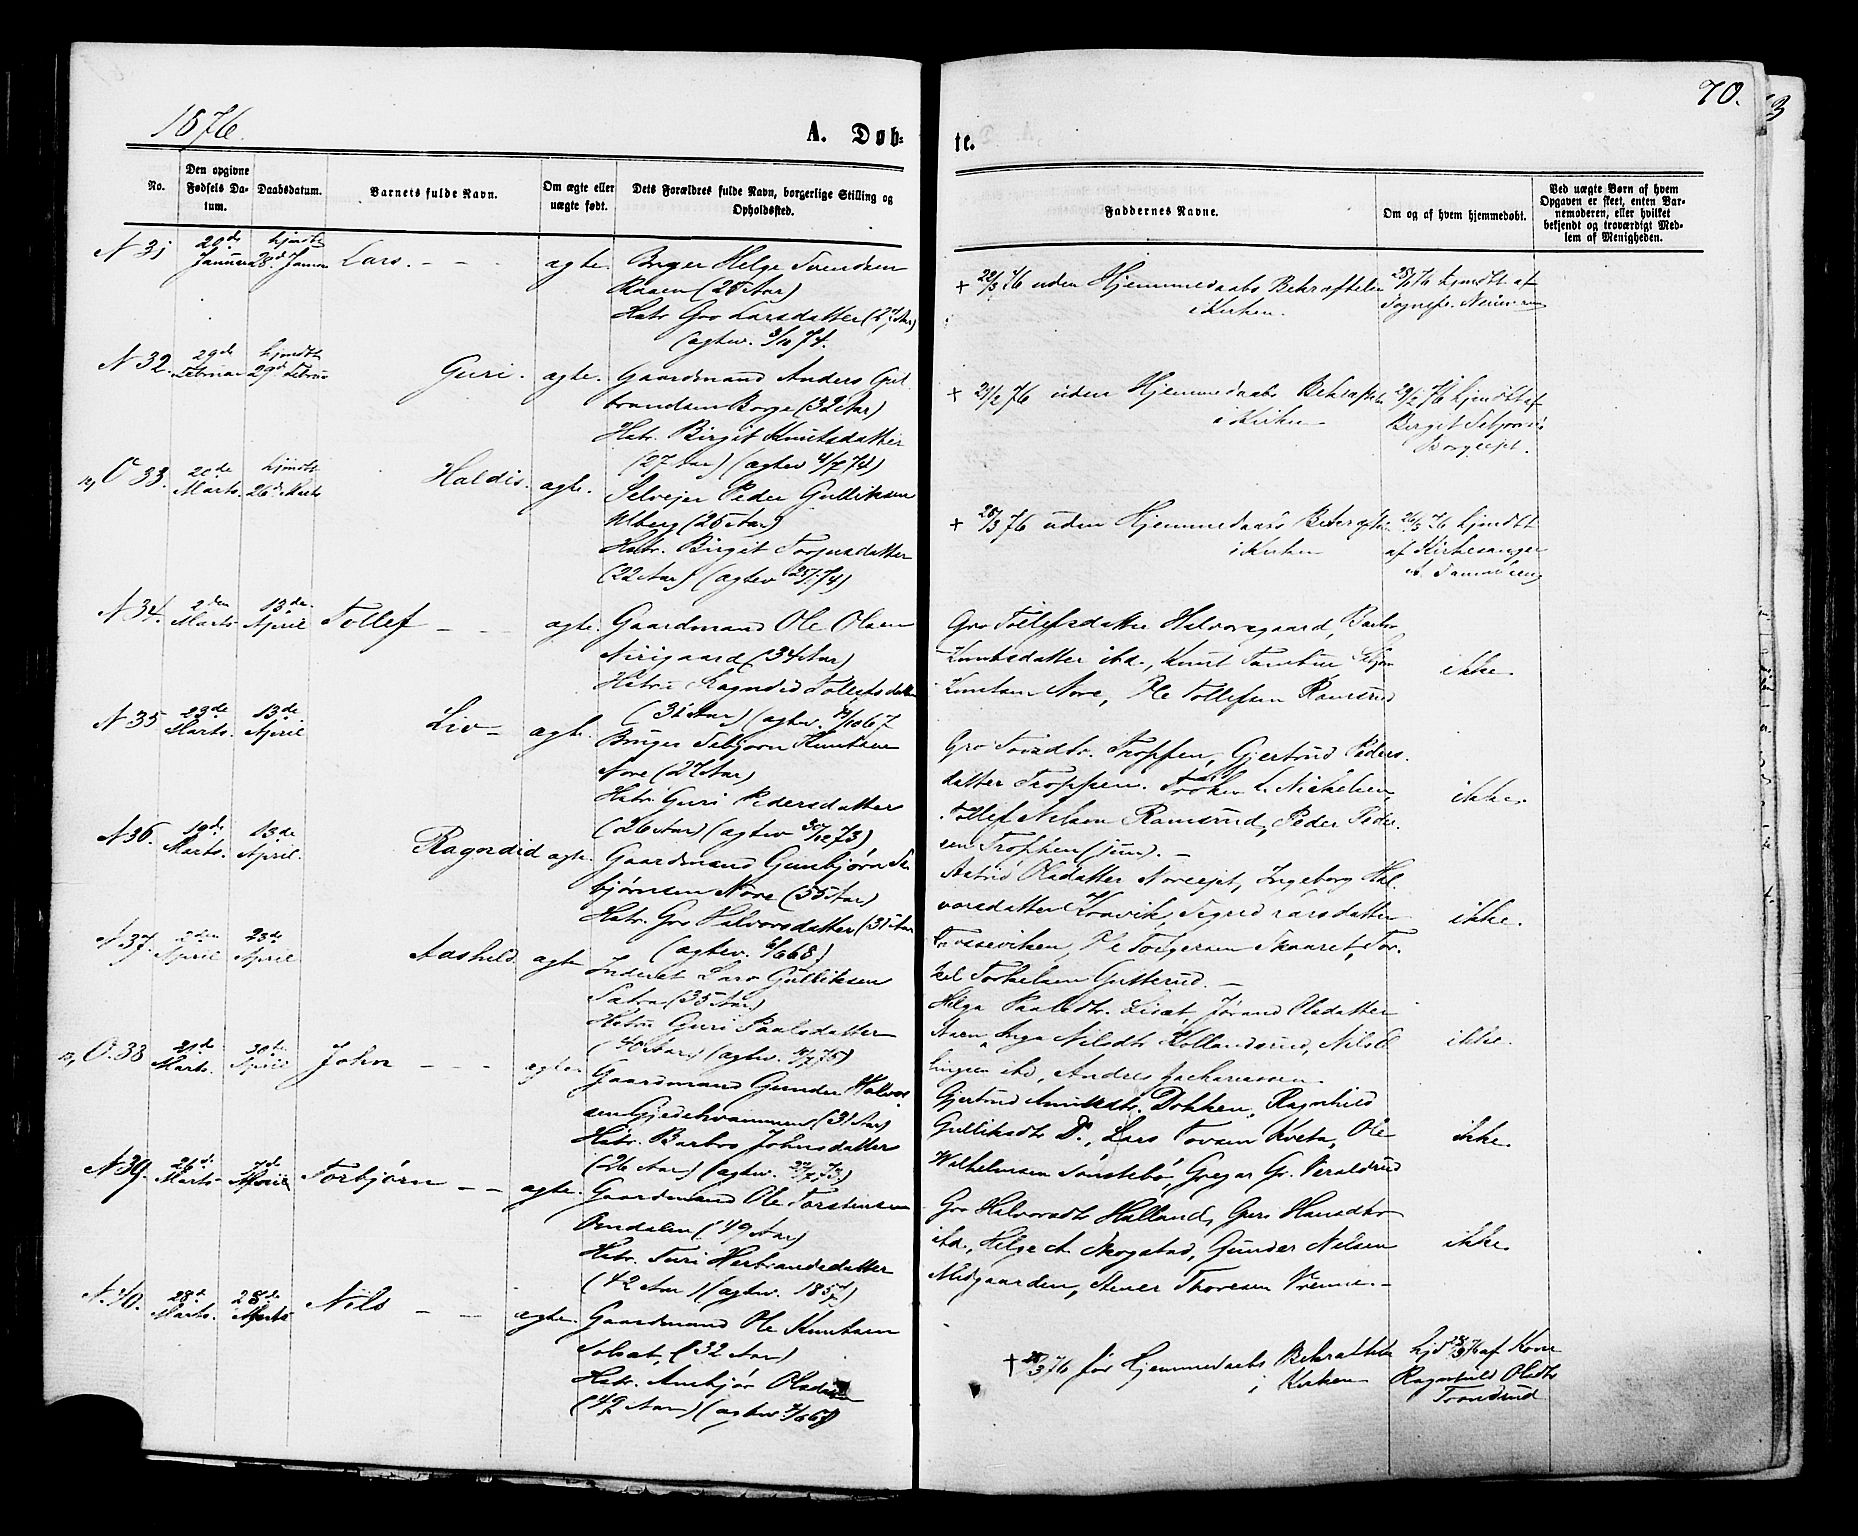 1876.
A. Døb-
te.
70.
3
No.
Den opgivne
Fødsels Da-
tum.
Daabsdatum.
Barnets fulde Navn.
Om ægte eller
uægte født.
Dets Forældres fulde Navn, borgerlige Stilling og
Opholdssted.
Faddernes Navne.
Om og af hvem hjemmedøbt.
Ved uægte Børn af hvem
Opgaven er skeet, enten Bar-
nemoderen, eller hvilket
bekjendt og troværdigt Med-
lem af Menigheden.
N 31
Januar
Lars.
ægte.
Bruger Helge Svendsen
(25 Aar)
Hstr. Gro Larsdatter (27 Aar)
(ægtev. 3/10 74.
+ 22/3 76 uden Hjemmedaabs Bekræftelse
i Kirken.
hjmdt af
N 32.
29de
Februar
hjmdt
29de Februar
Guri.
ægte.
Gaardmand Anders Gul-
brandsen Borge (32 Aar)
Hstr. Birgit Knutsdatter
(27 Aar) (ægtev 4/7 74)
+ 29/2 76 uden Hjemmedaabs Bekræftelse
i Kirken
29/2 76 hjmdt af
Birgit
Borgeejet.
O 33.
20de
Marts.
hjmdt
26de Marts
Haldis.
ægte.
Selvejer Peder Gulliksen
Ulberg (25 Aar)
Hstr. Birgit Torjusdatter
(22 Aar) (ægtev
+ 28/3 76 uden Hjemmedaabs Bekræftelse
i Kirken
26/3 76 hjmdt
af Kirkesanger
N 34.
2den
Marts.
13de
April
Tollef
ægte.
Gaardmand Ole Olsen
Nirigaard (34 Aar)
Hstru Ragndid Tollefsdatter
(31 Aar) (ægtev. 67
Gro Tollefsdatter Halvorsgaard, Barbro
Knutsdatter ibd., Knut
Knutsen Nore, Ole Tollefsen Ramsrud
ikke.
N 35
23de
Marts.
13de
April
Liv
ægte.
Bruger Tebjørn Knutsen
Nore (27 Aar)
Hstr. Guri Pedersdatter
(26 Aar) (ægtev 73)
Gro Tovsdtr. Troppen, Gjertrud Peders-
datter Troppen. L. Mickelsen,
Tollef Nelsen Ramsrud, Peder Peder-
sen Troppen (jun). —
ikke.
N 36.
19de
Marts.
13de
April.
Ragndid
ægte.
Gaardmand Gunbjørn Te-
bjørnsen Nore (35 Aar)
Hstr. Gro Halvorsdatter (31 Aar
(ægtev. 6/6 68)
Astrid Olsdatter Noreejet, Ingeborg Hal-
vorsdatter Kravik, Sigrid Larsdatter
Fosseviken, Ole Torgersen Skaaret, Tor-
kel Torkelsen Gutterud. —
ikke.
N 37.
2den
April
23de
April
Aashild
ægte
Inderst Lars Gulliksen
Sætra (35 Aar)
Hstru Guri Paalsdatter
(40 Aar) (ægtev. 75)
Helga Paalsdtr. Liset, Jørand Olsdatter
Inga Nilsdtr Kollandsrud, Nils
ibd, Andres Zachariassen
ikke.
O. 38
21de
Marts.
30te
April
John
ægte
Gaardmand Gunder Halvor-
sen Gjedehvammen (31 Aar)
Hstr. Barbro Johnsdatter
(26 Aar) (ægtev. 73)
Gjertrud Amundsdtr. Dokken, Ragnhild
Gulliksdtr D., Lars Tovsen Kveta, Ole
Wilhelmsen Tønstebø, Gregar Gr. Veraldrud
ikke.
N 39.
26de
Marts.
7de
Torbjørn
ægte.
Gaardmand Ole Torstensen
Omdalen (49 Aar)
Hstr. Turi Herbrandsdatter
(42 Aar) (ægtev. 1857)
Gro Halvorsdtr Halland, Guri Hansdtr
ibd., Helge A Skogstad, Gunder Nelsen
Midgaarden, Stener Thoresen Vrenne. —
ikke.
N. 40.
28de
Marts.
28de
Marts
Nils
ægte.
Gaardmand Ole Knutsen
(32 Aar)
Hstr. Anbjør Olsdatter
(49 Aar) (ægtev 68)
+ 28/3 76 før Hjemmedaabs Bekræftelse
i Kirken
hjd 28/3 76 af Kone
Ragnhild Olsdtr
Trondrud